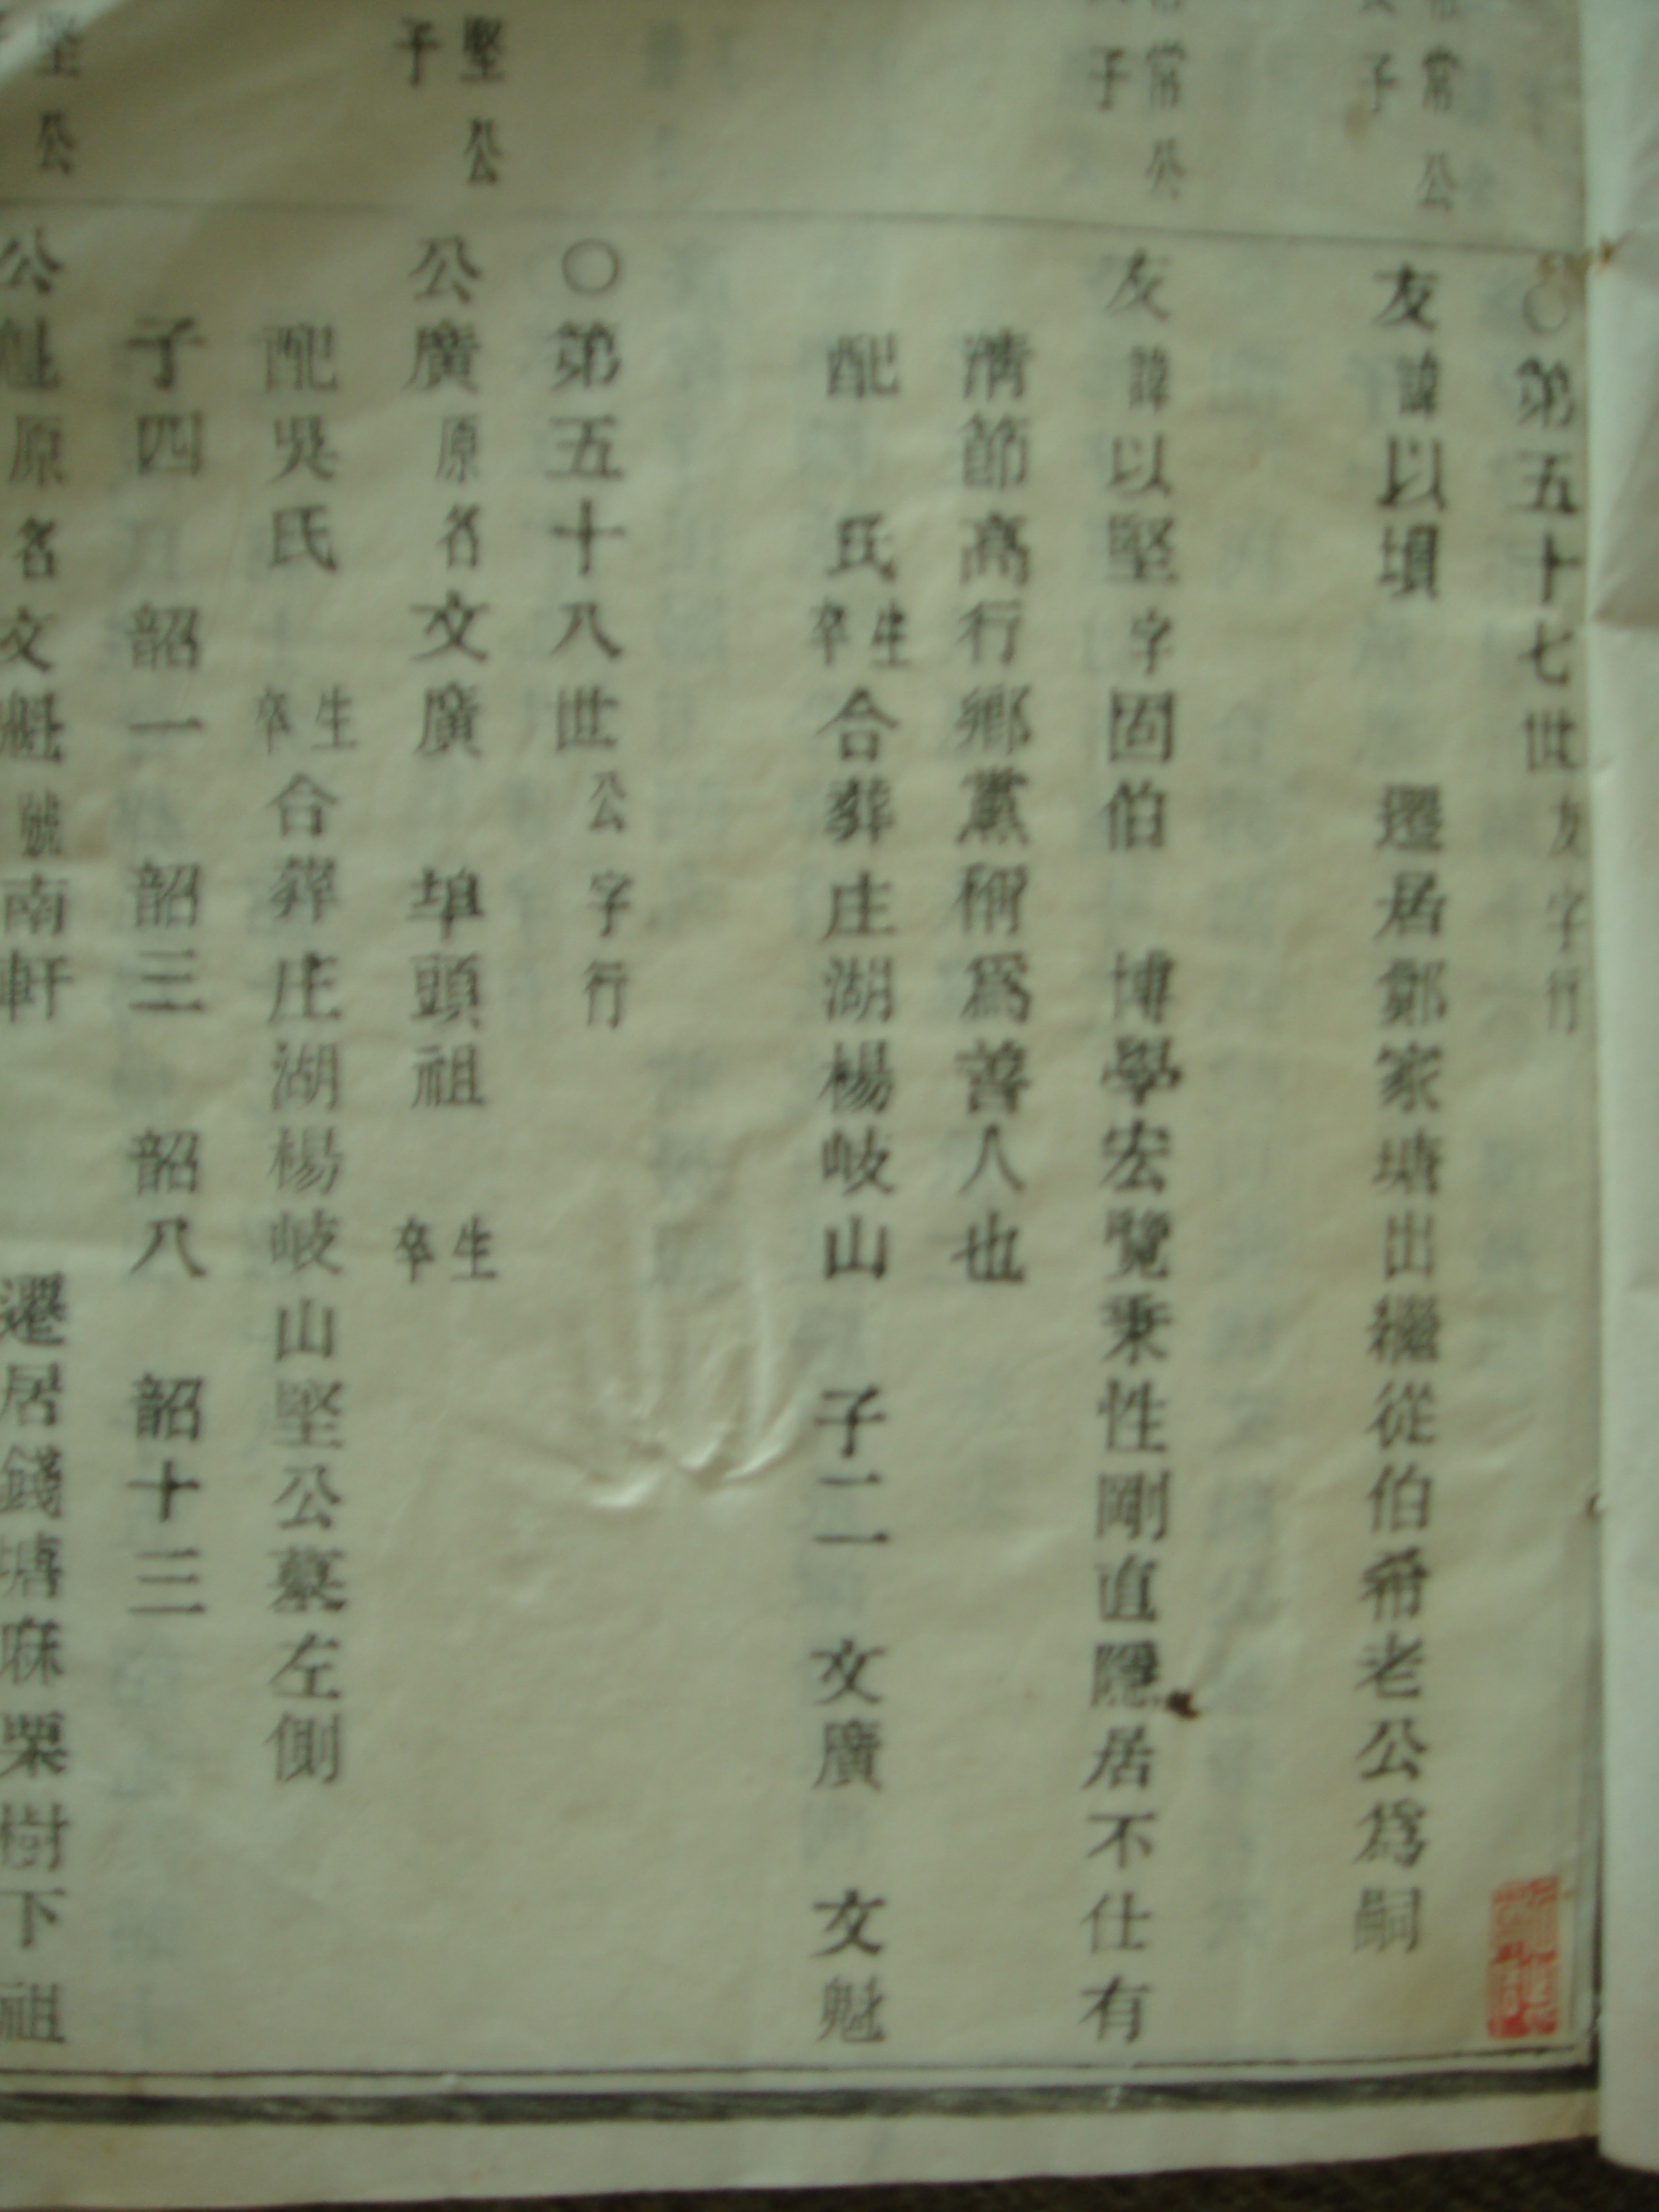 ○第五十七世友字行
常公子
友諱以塤 遷居鄭家塘出繼從伯希老公爲嗣
常公子
友諱以堅字固伯 博學宏覽秉性剛直隱居不仕有
清節高行鄉黨稱爲善人也
配 氏生卒合葬庄湖楊岐山 子二 文廣 文魁
○第五十八世公字行
堅公子
公廣原名文廣 埠頭祖 生卒
配吳氏 生卒合葬庄湖楊岐山堅公墓左側
子四 韶一 韶三 韶八 韶十三
堅公
公魁原名文魁號南軒 遷居錢塘麻栗樹下祖